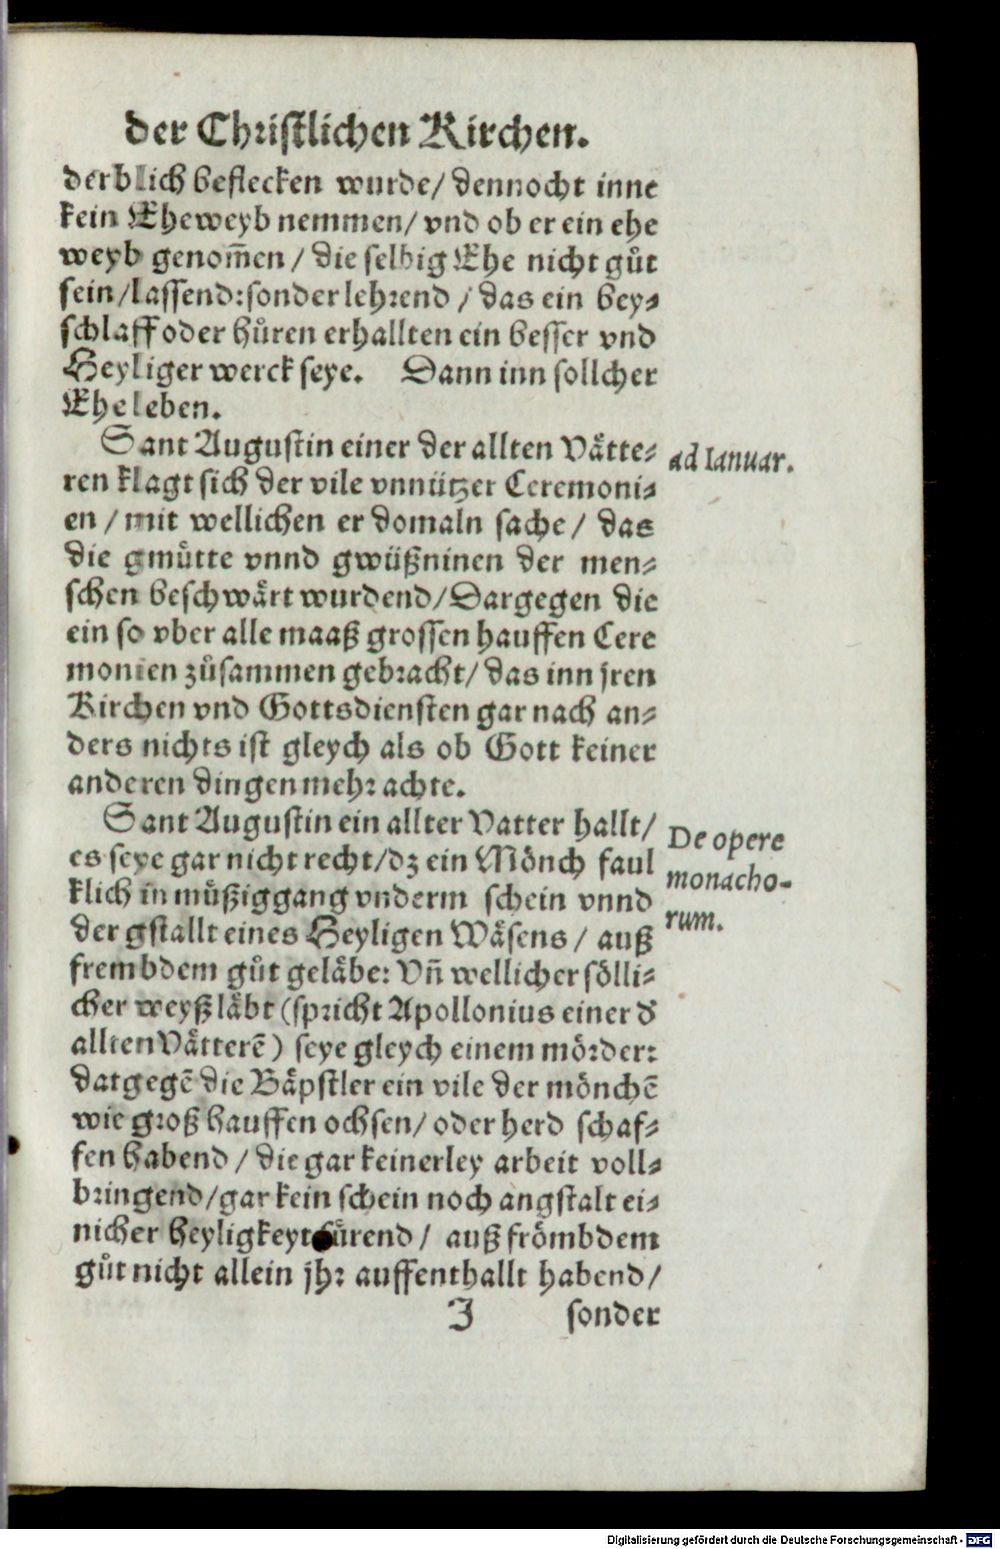 der Christlichen Kirchen.
derblich beflecken wurde/ dennocht inne
kein Eheweyb nemmen/ vnd ob er ein ehe
weyb genom̃en / die selbig Ehe nicht gůt
sein/lassend: sonder lehrend / das ein bey⸗
schlaff oder hůren erhallten ein besser vnd
Heyliger werck seye. Dann inn sollcher
Ehe leben.
Sant Augustin einer der allten Vätte⸗
ad Ianuar.
ren klagt sich der vile vnnützer Ceremoni⸗
en / mit wellichen er domaln sache / das
die gmůtte vnnd gwüßninen der men⸗
schen beschwärt wurdend/Dargegen die
ein so vber alle maaß grossen hauffen Cere
monien zůsammen gebracht/ das inn jren
Kirchen vnd Gottsdiensten gar nach an⸗
ders nichts ist gleych als ob Gott keiner
anderen dingen mehr achte.
Sant Augustin ein allter Vatter hallt/
De opere
es seye gar nicht recht/dz ein Mönch faul
monacho-
klich in můßiggang vnderm schein vnnd
rum.
der gstallt eines Heyligen Wäsens / auß
frembdem gůt geläbe: Vñ wellicher sölli⸗
cher weyß läbt (spricht Apollonius einer d
allten Vätterẽ) seye gleych einem mörder:
datgegẽ die Bäpstler ein vile der mönchẽ
wie groß hauffen ochsen/ oder herd schaf⸗
fen habend / die gar keinerley arbeit voll⸗
bringend/gar kein schein noch angstalt ei⸗
nicher heyligkeyt fůrend / auß frömbdem
gůt nicht allein jhr auffenthallt habend/
J sonder
Digitalisierung gefördert durch die Deutsche Forschungsgemeinschaft - DFG